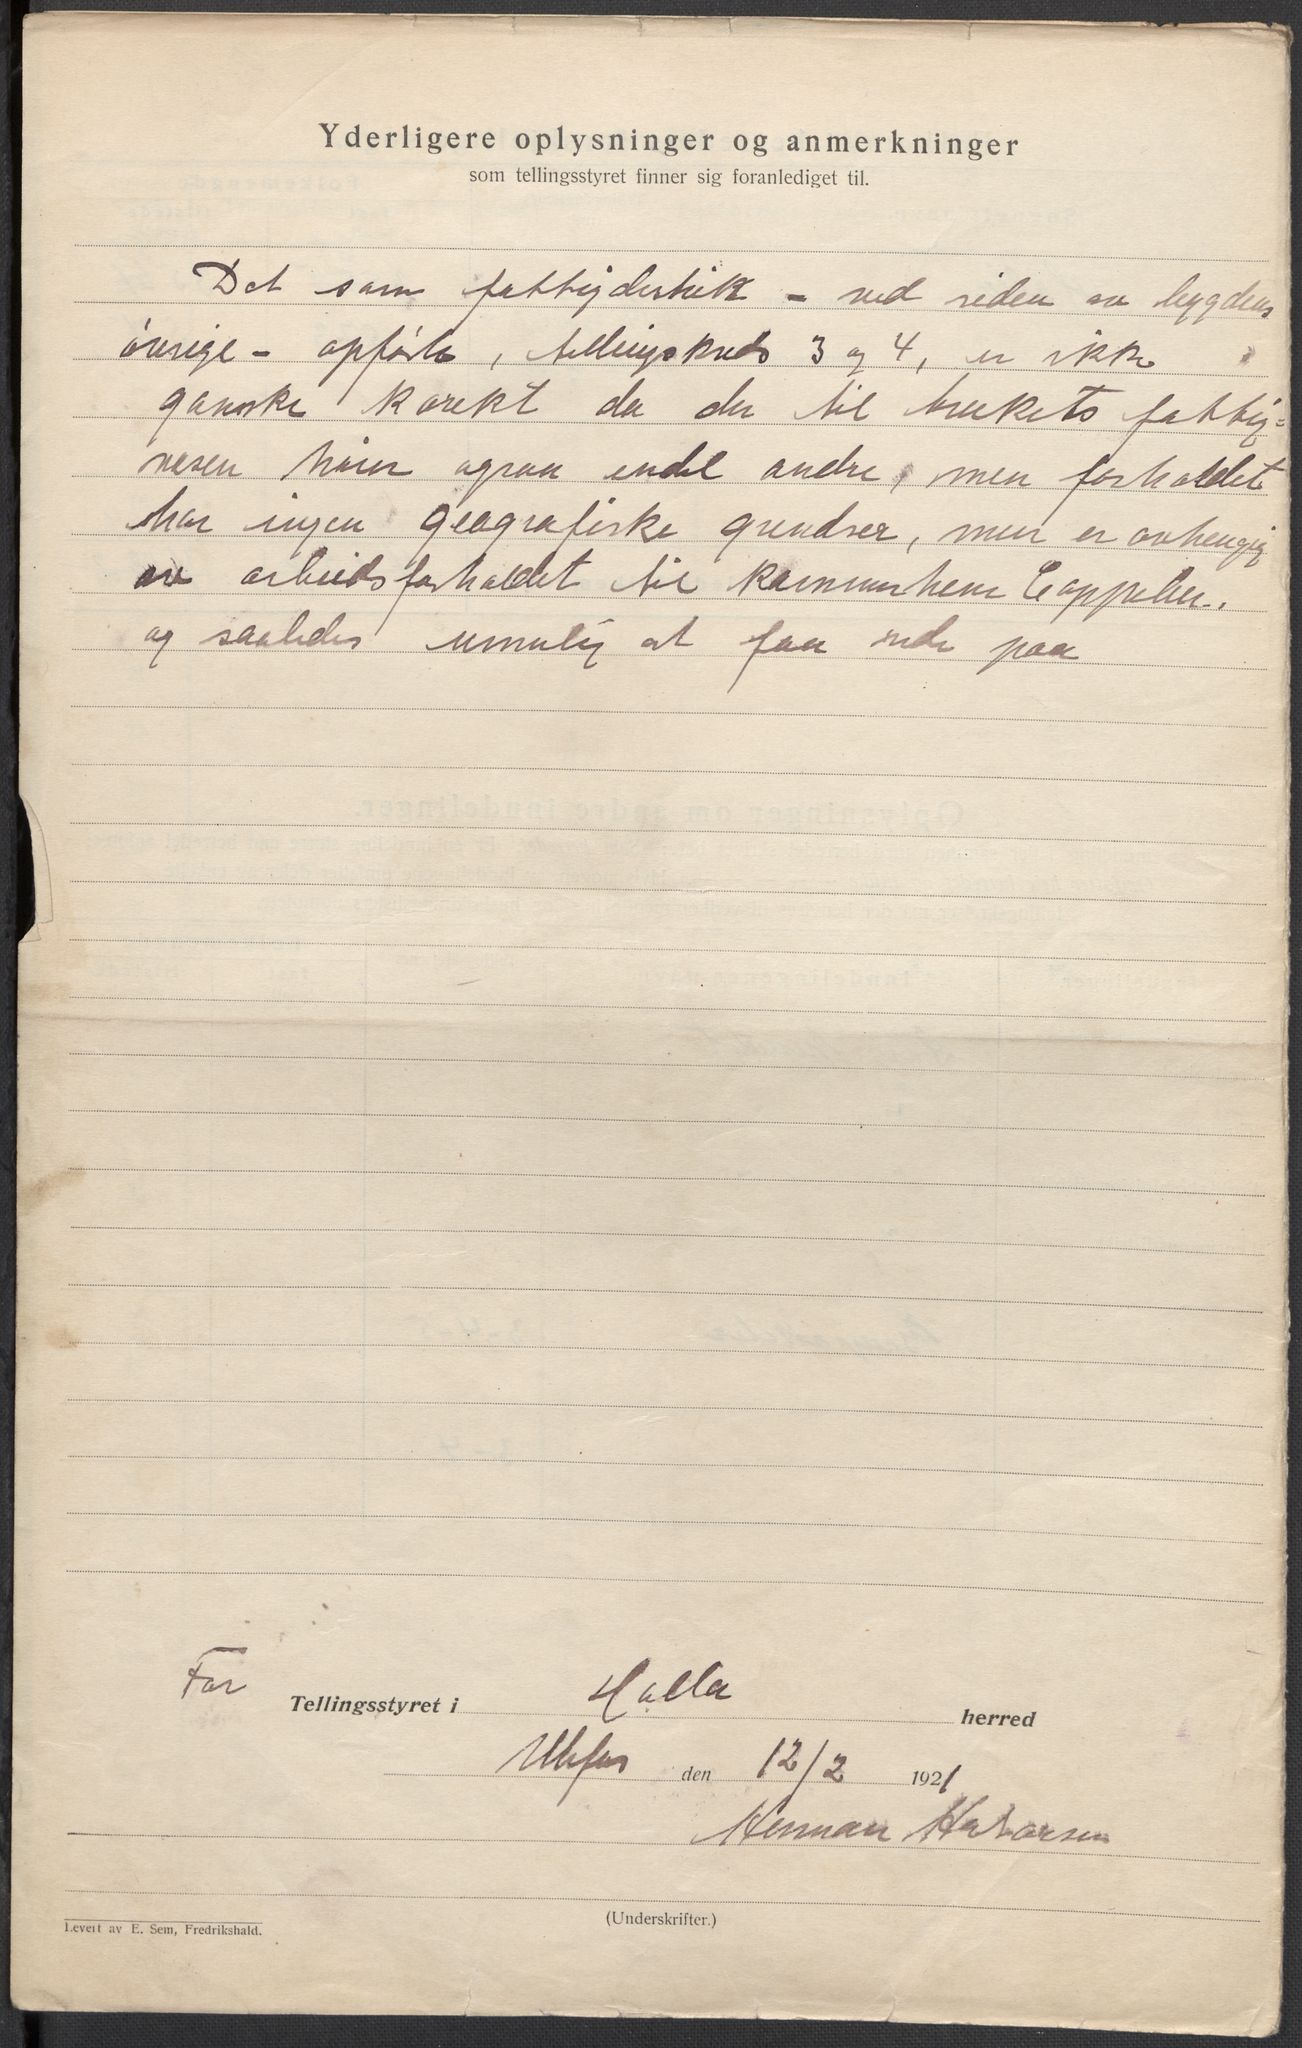 Yderligere oplysninger og anmerkninger
som tellingsstyret finner sig foranlediget til.
Det som fattigdistrikt - ved siden av bygdens
øvrige - opførte, tellingskreds 3 og 4, er ikke
ganske korekt da der til brukets fattig=
væsen hører ogsaa endel andre, men forholdet
har ingen geografiske grendser, men er avhengig
av arbeidsforholdet til kammerherre Cappelen.
og saaledes umulig at faa rede paa
For Tellingsstyret i Holla herred
Ulefos den 12/2 1921
Herman Halvorsen
(Underskrifter.)
Levert av E. Sem, Fredrikshald.